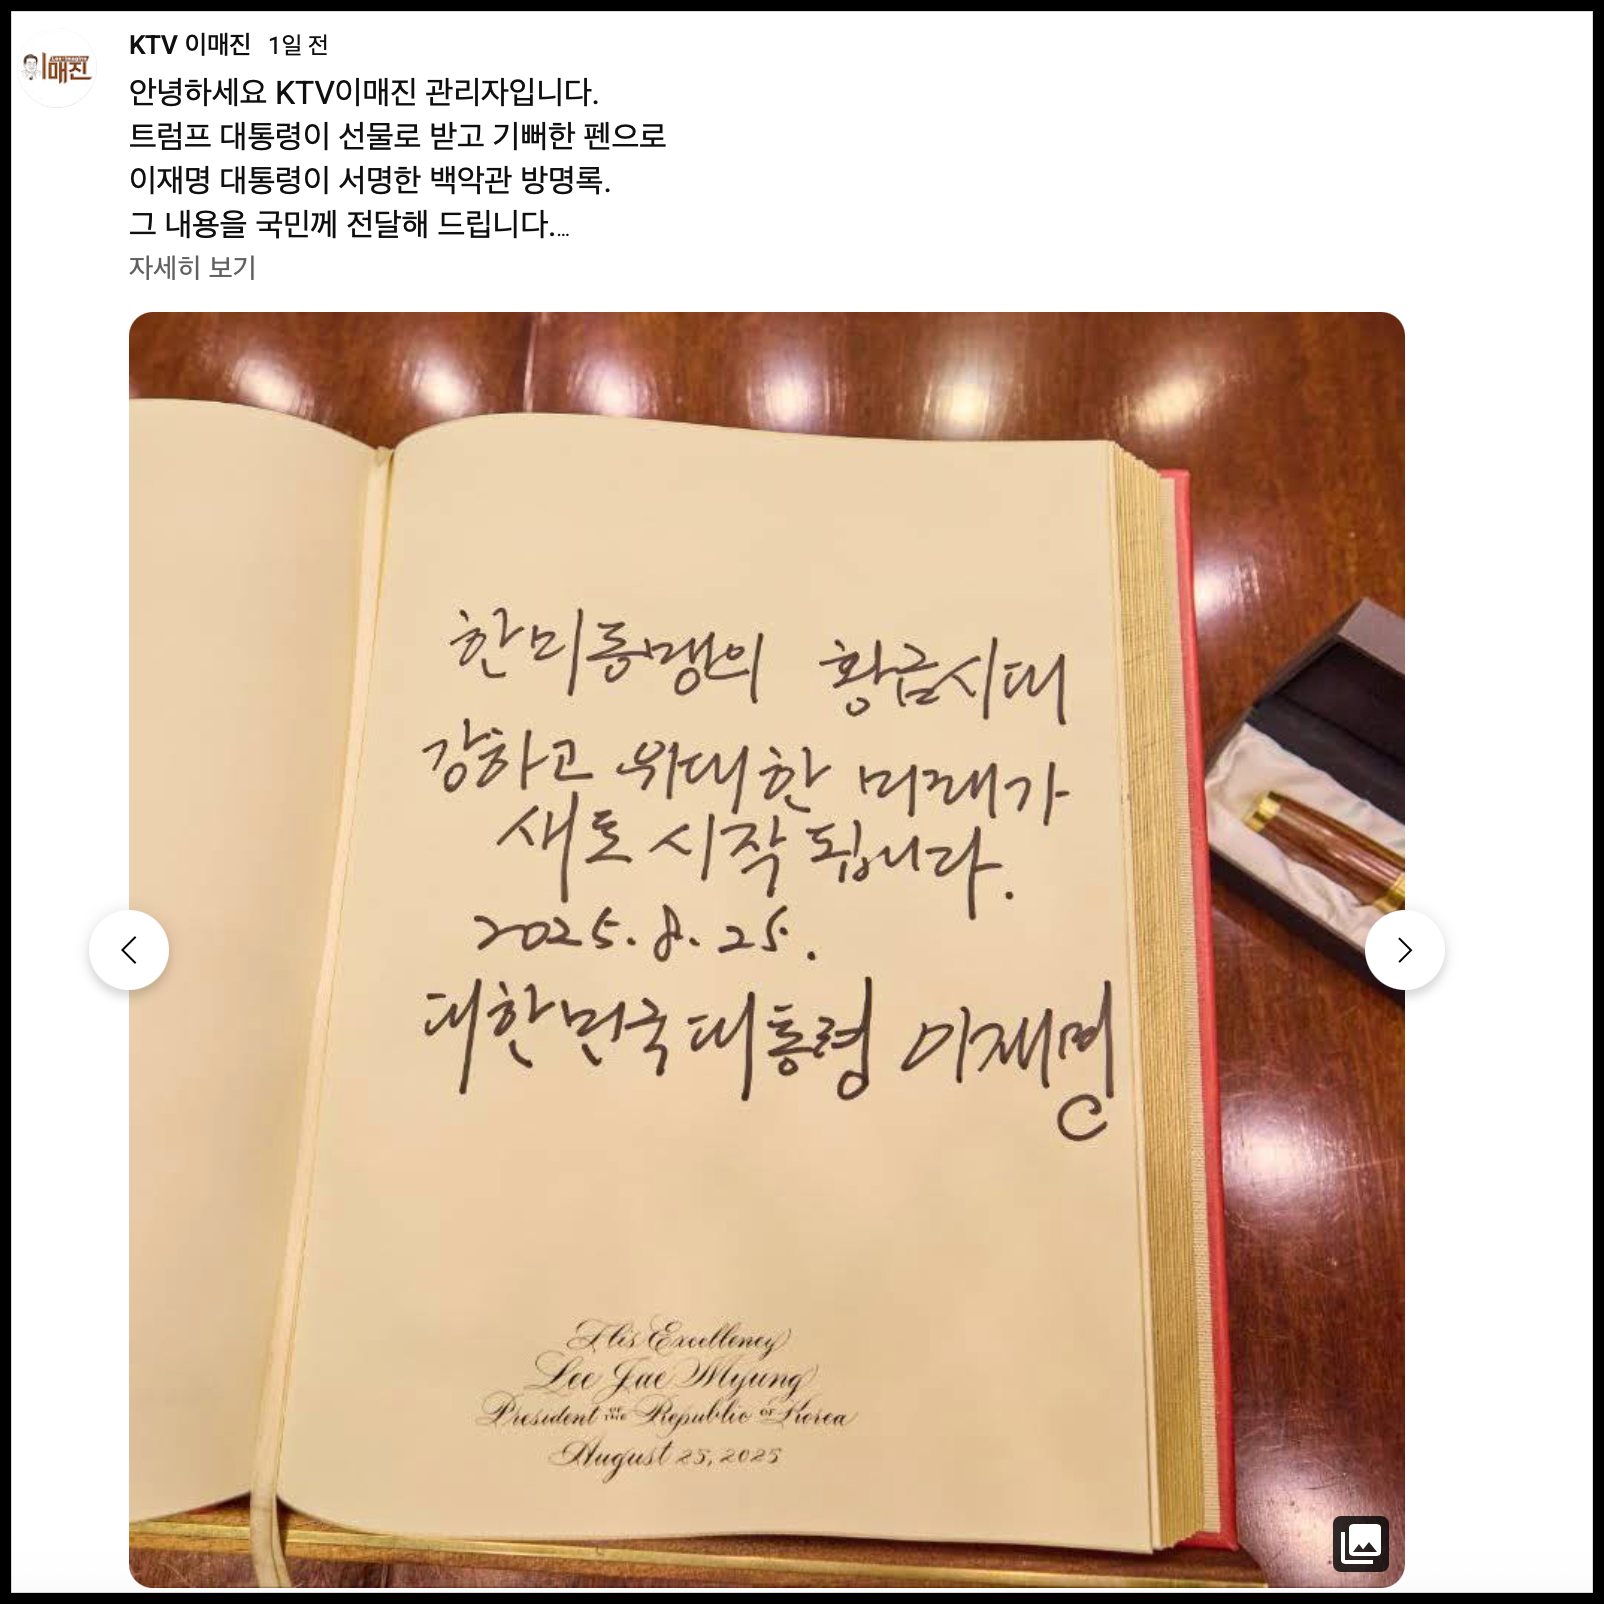 KTV 이매진 1일 전
이매진
안녕하세요 KTV이매진 관리자입니다.
트럼프 대통령이 선물로 받고 기뻐한 펜으로
이재명 대통령이 서명한 백악관 방명록.
그 내용을 국민께 전달해 드립니다....
자세히 보기
한미동맹의 황금시대
강하고 위대한 미래가
새로 시작 됩니다.
2025. 8. 25.
대한민국 대통령 이재명
His Excellency
Lee Jae Myung
President OF THE Republic OF Korea
August 25, 2025